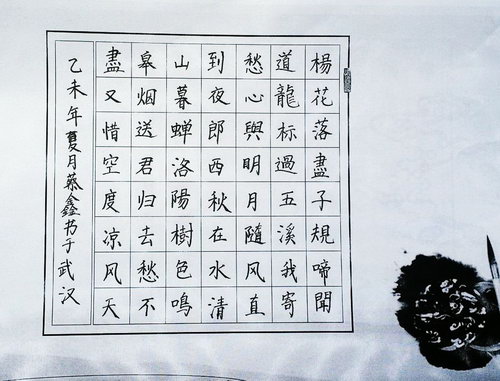 楊花落盡子規啼聞
道龍标過五溪我寄
愁心與明月隨风直
到夜郎西秋在水清
山暮蝉洛陽樹色鳴
皋烟送君归去愁不
盡又惜空度凉风天
乙未年夏月鑫书于武汉